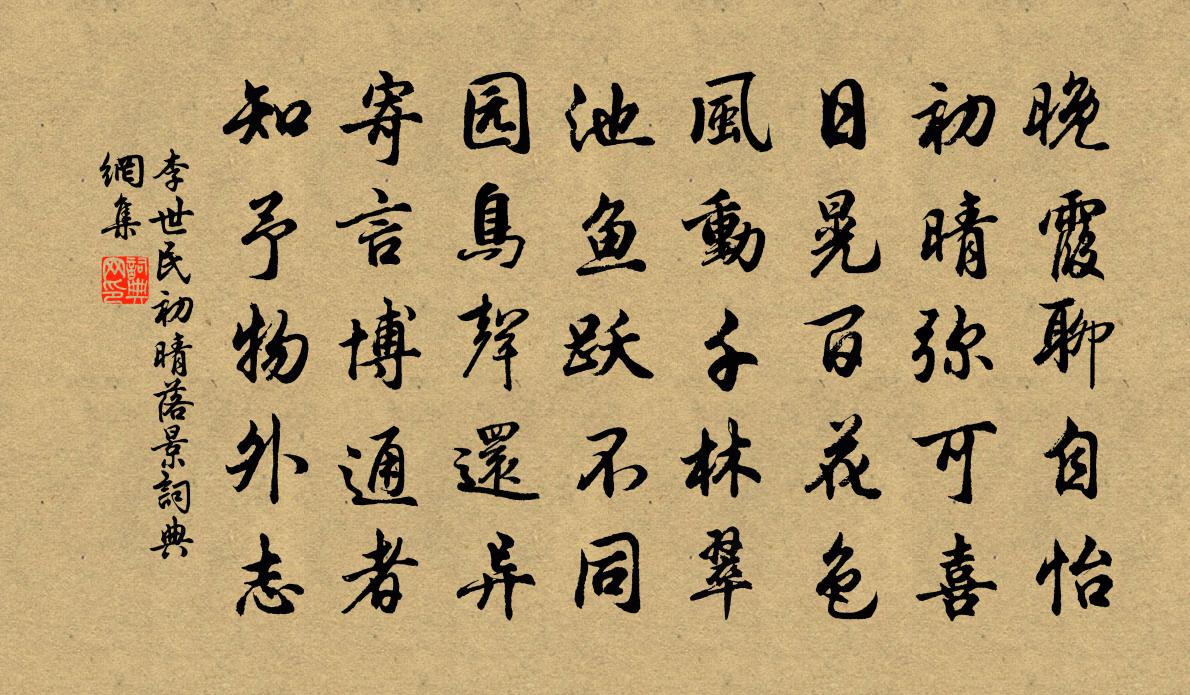 晚霞聊自怡
初晴弥可喜
日晃百花色
風動千林翠
池鱼跃不同
园鳥聲還异
寄言博通者
知予物外志
李世民初晴落景詞典
網集
詞典
网印